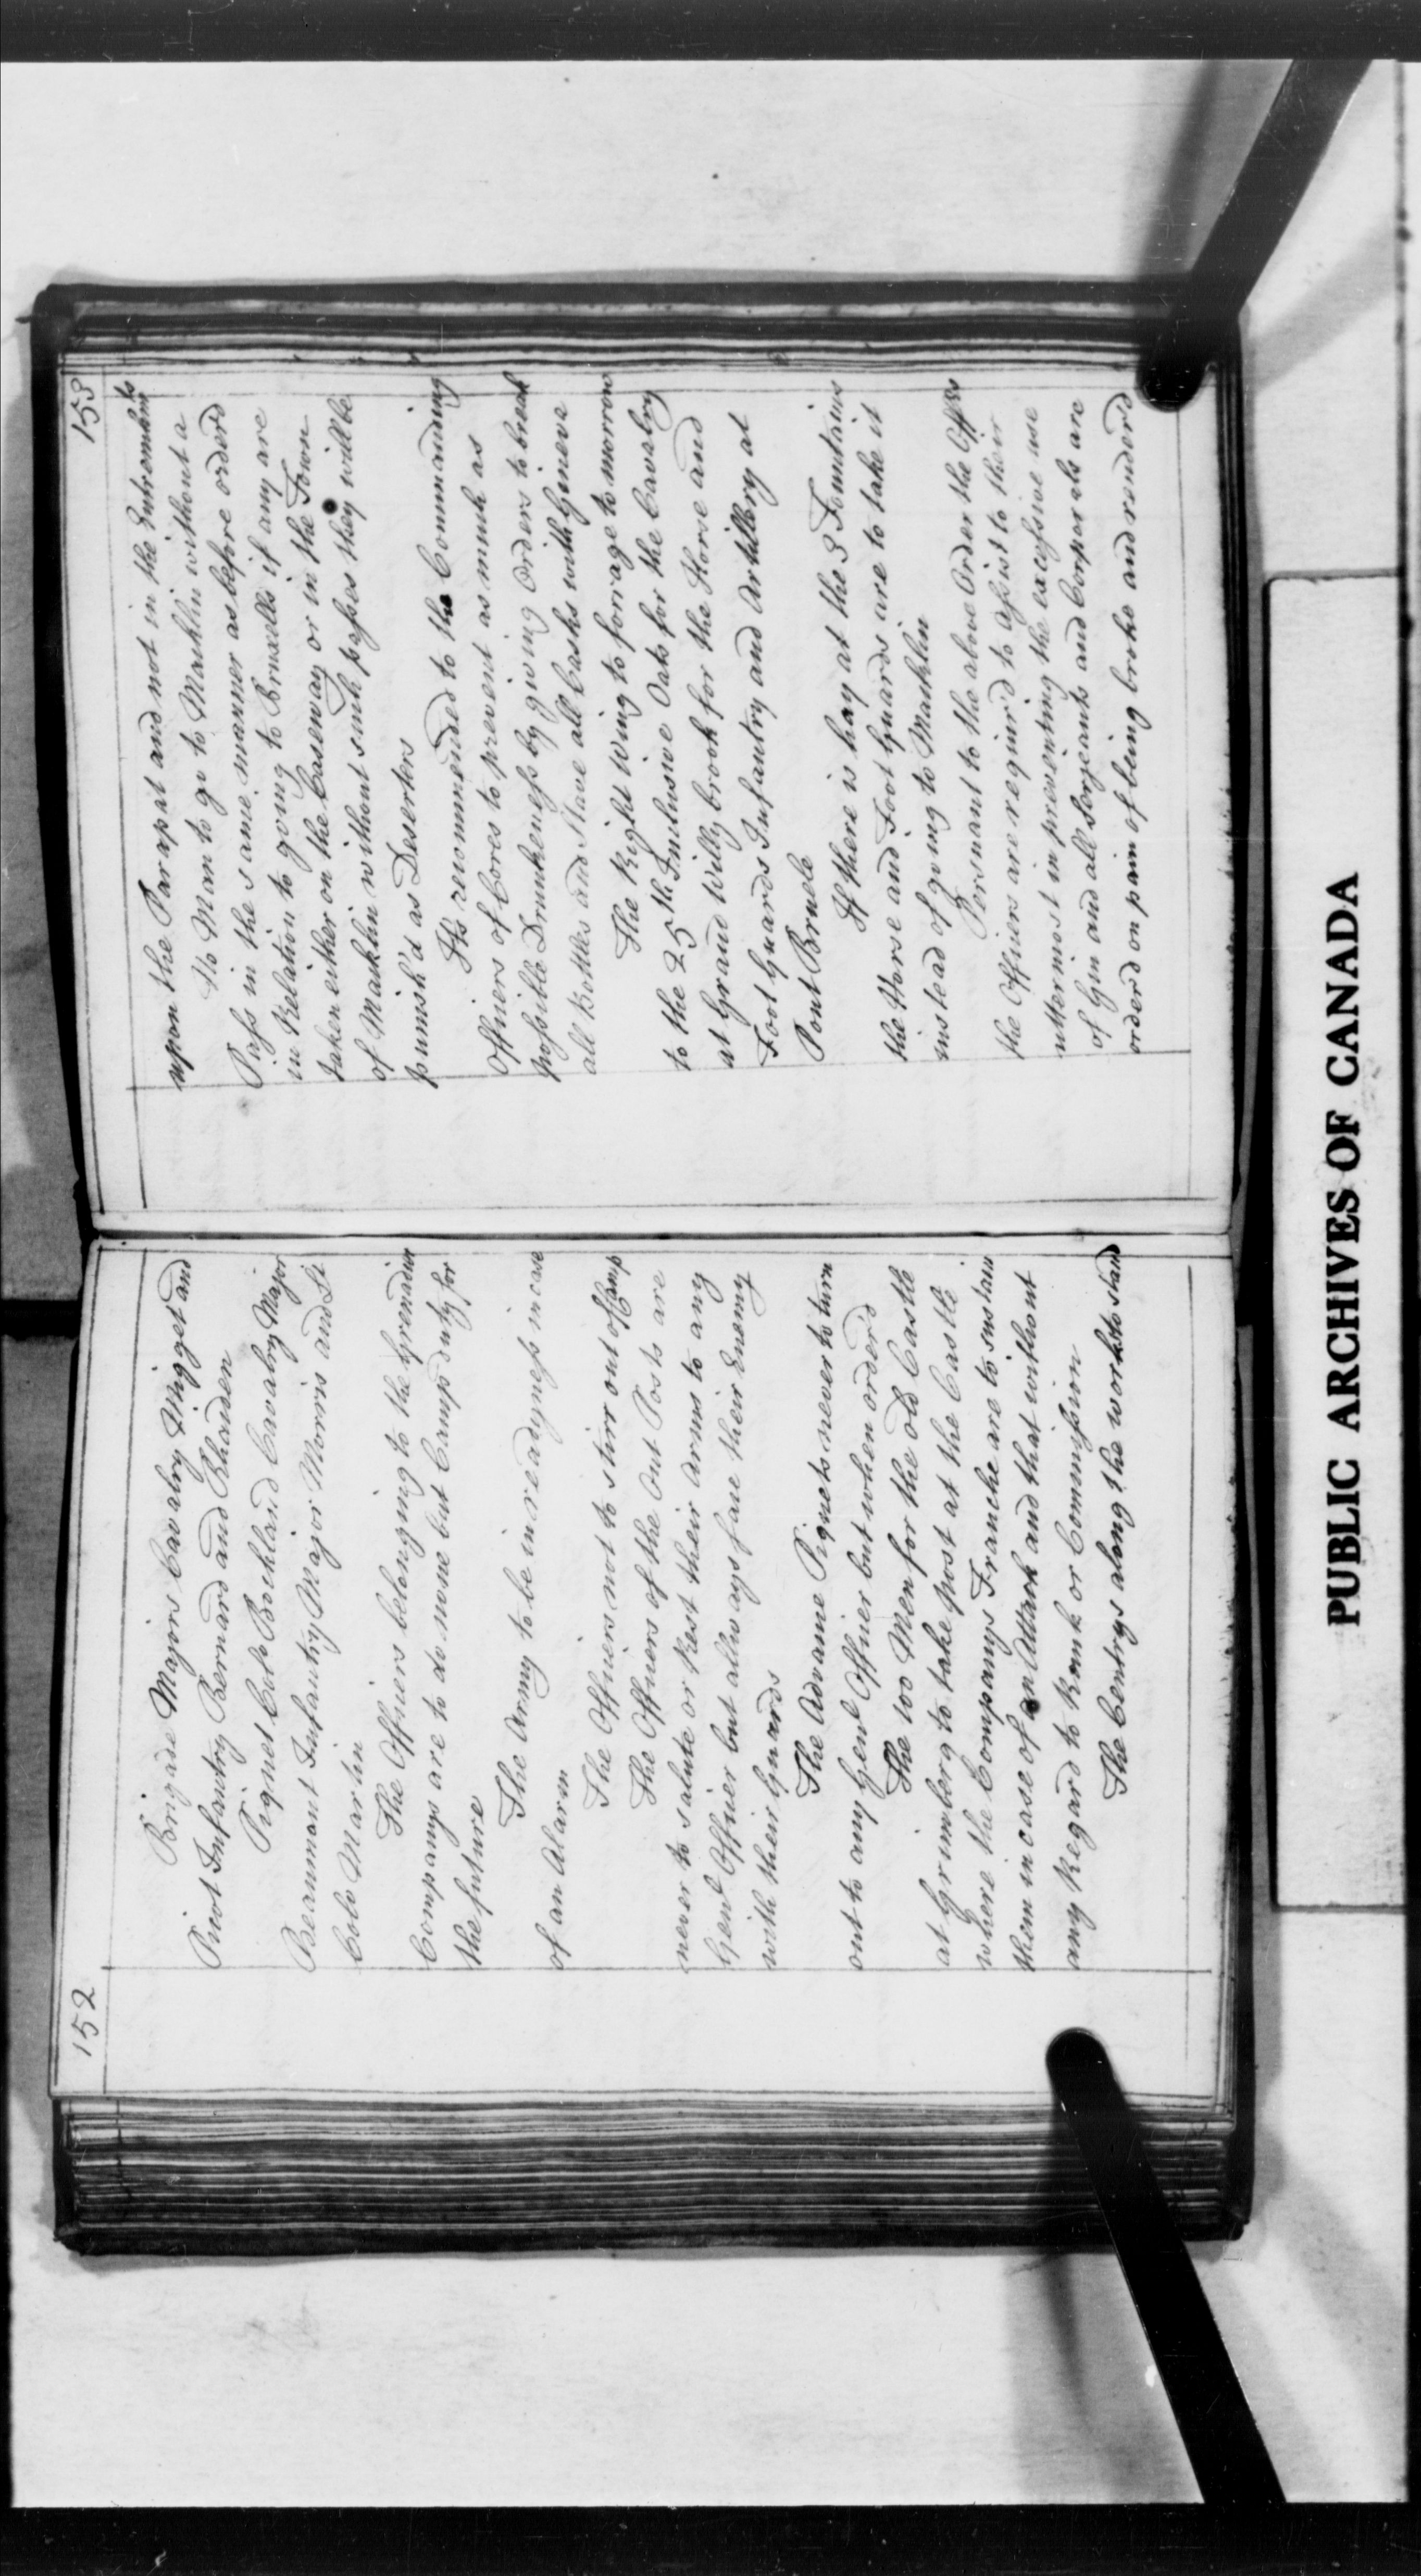 152
Brigade Majors Cavalry Migget and
Picot Infantry Bernard and Rhoaden
Piquet Colo Bockland Cavalry Major
Beaumont Infantry Major Morris and Lt
Colo Martin
The Officers belonging to the Grenadier
Companys are to do none but Camp duty for
the future
The Army to be in readyness in case
of an Alarm
The Officers not to stirr out of Camp
The Officers of the Out Posts are
never to salute or Rest their Arms to any
Genl Officer but allways face their Enemy
with their Guards
The Advance Piquets never to turn
out to any Genl Officer but when order'd
The 100 Men for the old Castle
at Grimberg to take post at the Castle
where the Companys Franche are to sustain
them in case of an Attack and that without
any Regard to Rank or Commission
The Centrys along the works to stand
153
upon the Parapat and not in the Entrenchmts
No Man to go to Machlin without a
Pass in the same manner as before order'd
in Relation to going to Bruxells if any are
taken either on the Caseway or in the Town
of Machlin without such passes they will be
punish'd as Deserters
Its recommended to the Commanding
Officers of Cores to prevent as much as
possible Drunkeness by giving Orders to break
all Bottles and Stave all Casks with Geneva
The Right Wing to forrage to morrow
to the 25th Inclusive Oats for the Cavalry
at Grand Willy brook for the Horse and
Foot Guards Infantry and Artillery at
Pont Bruele
If there is hay at the 3 Fountains
the Horse and Foot Guards are to take it
instead of going to Machlin
Persuant to the above Order the Offrs
the Officers are requir'd to assist to their
uttermost in preventing the excessive use
of Gin and all Serjeants and Corporals are
order'd on pain of being broke and render'd
PUBLIC ARCHIVES OF CANADA